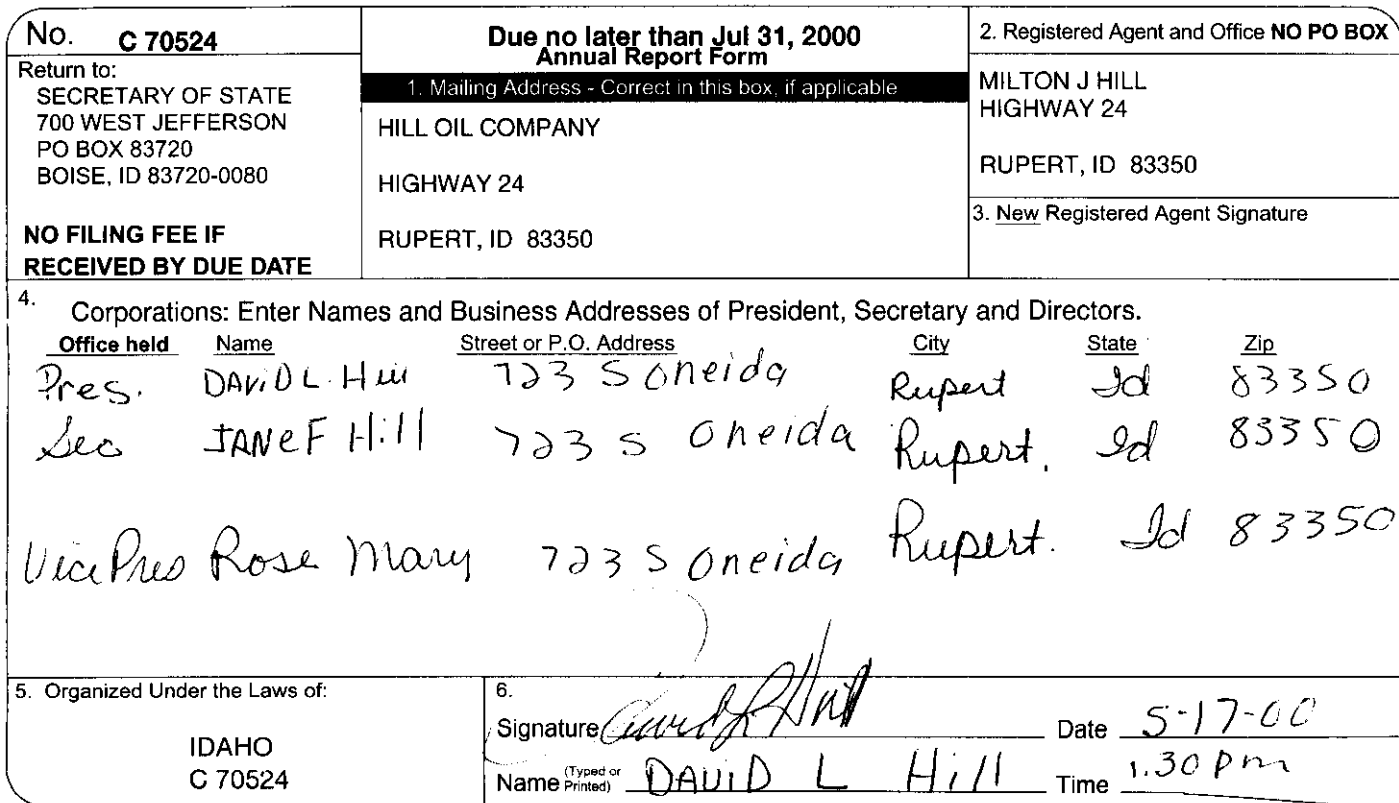 No. C 70524
Return to:
SECRETARY OF STATE
700 WEST JEFFERSON
PO BOX 83720
BOISE, ID 83720-0080
NO FILING FEE IF
RECEIVED BY DUE DATE
Due no later than Jul 31, 2000
Annual Report Form
1. Mailing Address - Correct in this box, if applicable
HILL OIL COMPANY
HIGHWAY 24
RUPERT, ID 83350
2. Registered Agent and Office NO PO BOX
MILTON J HILL
HIGHWAY 24
RUPERT, ID 83350
3. New Registered Agent Signature
4. Corporations: Enter Names and Business Addresses of President, Secretary and Directors.
Office held Name Street or P.O. Address City State Zip
Pres. DAViD L. Hill 723 S Oneida Rupert Id 83350
Sec JANe F Hill 723 S Oneida Rupert. Id 83350
Vice Pres Rose Mary 723 S Oneida Rupert. Id 83350
5. Organized Under the Laws of:
IDAHO
C 70524
6.
Signature David L Hill Date 5-17-00
Name (Typed or Printed) DAViD L Hill Time 1.30 pm